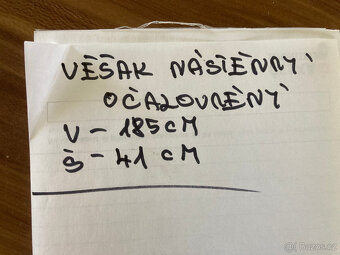 VĚŠAK NÁSTĚNNÝ
OČALOUNĚNÝ
V - 185 CM
Š - 41 CM
Bazos.cz